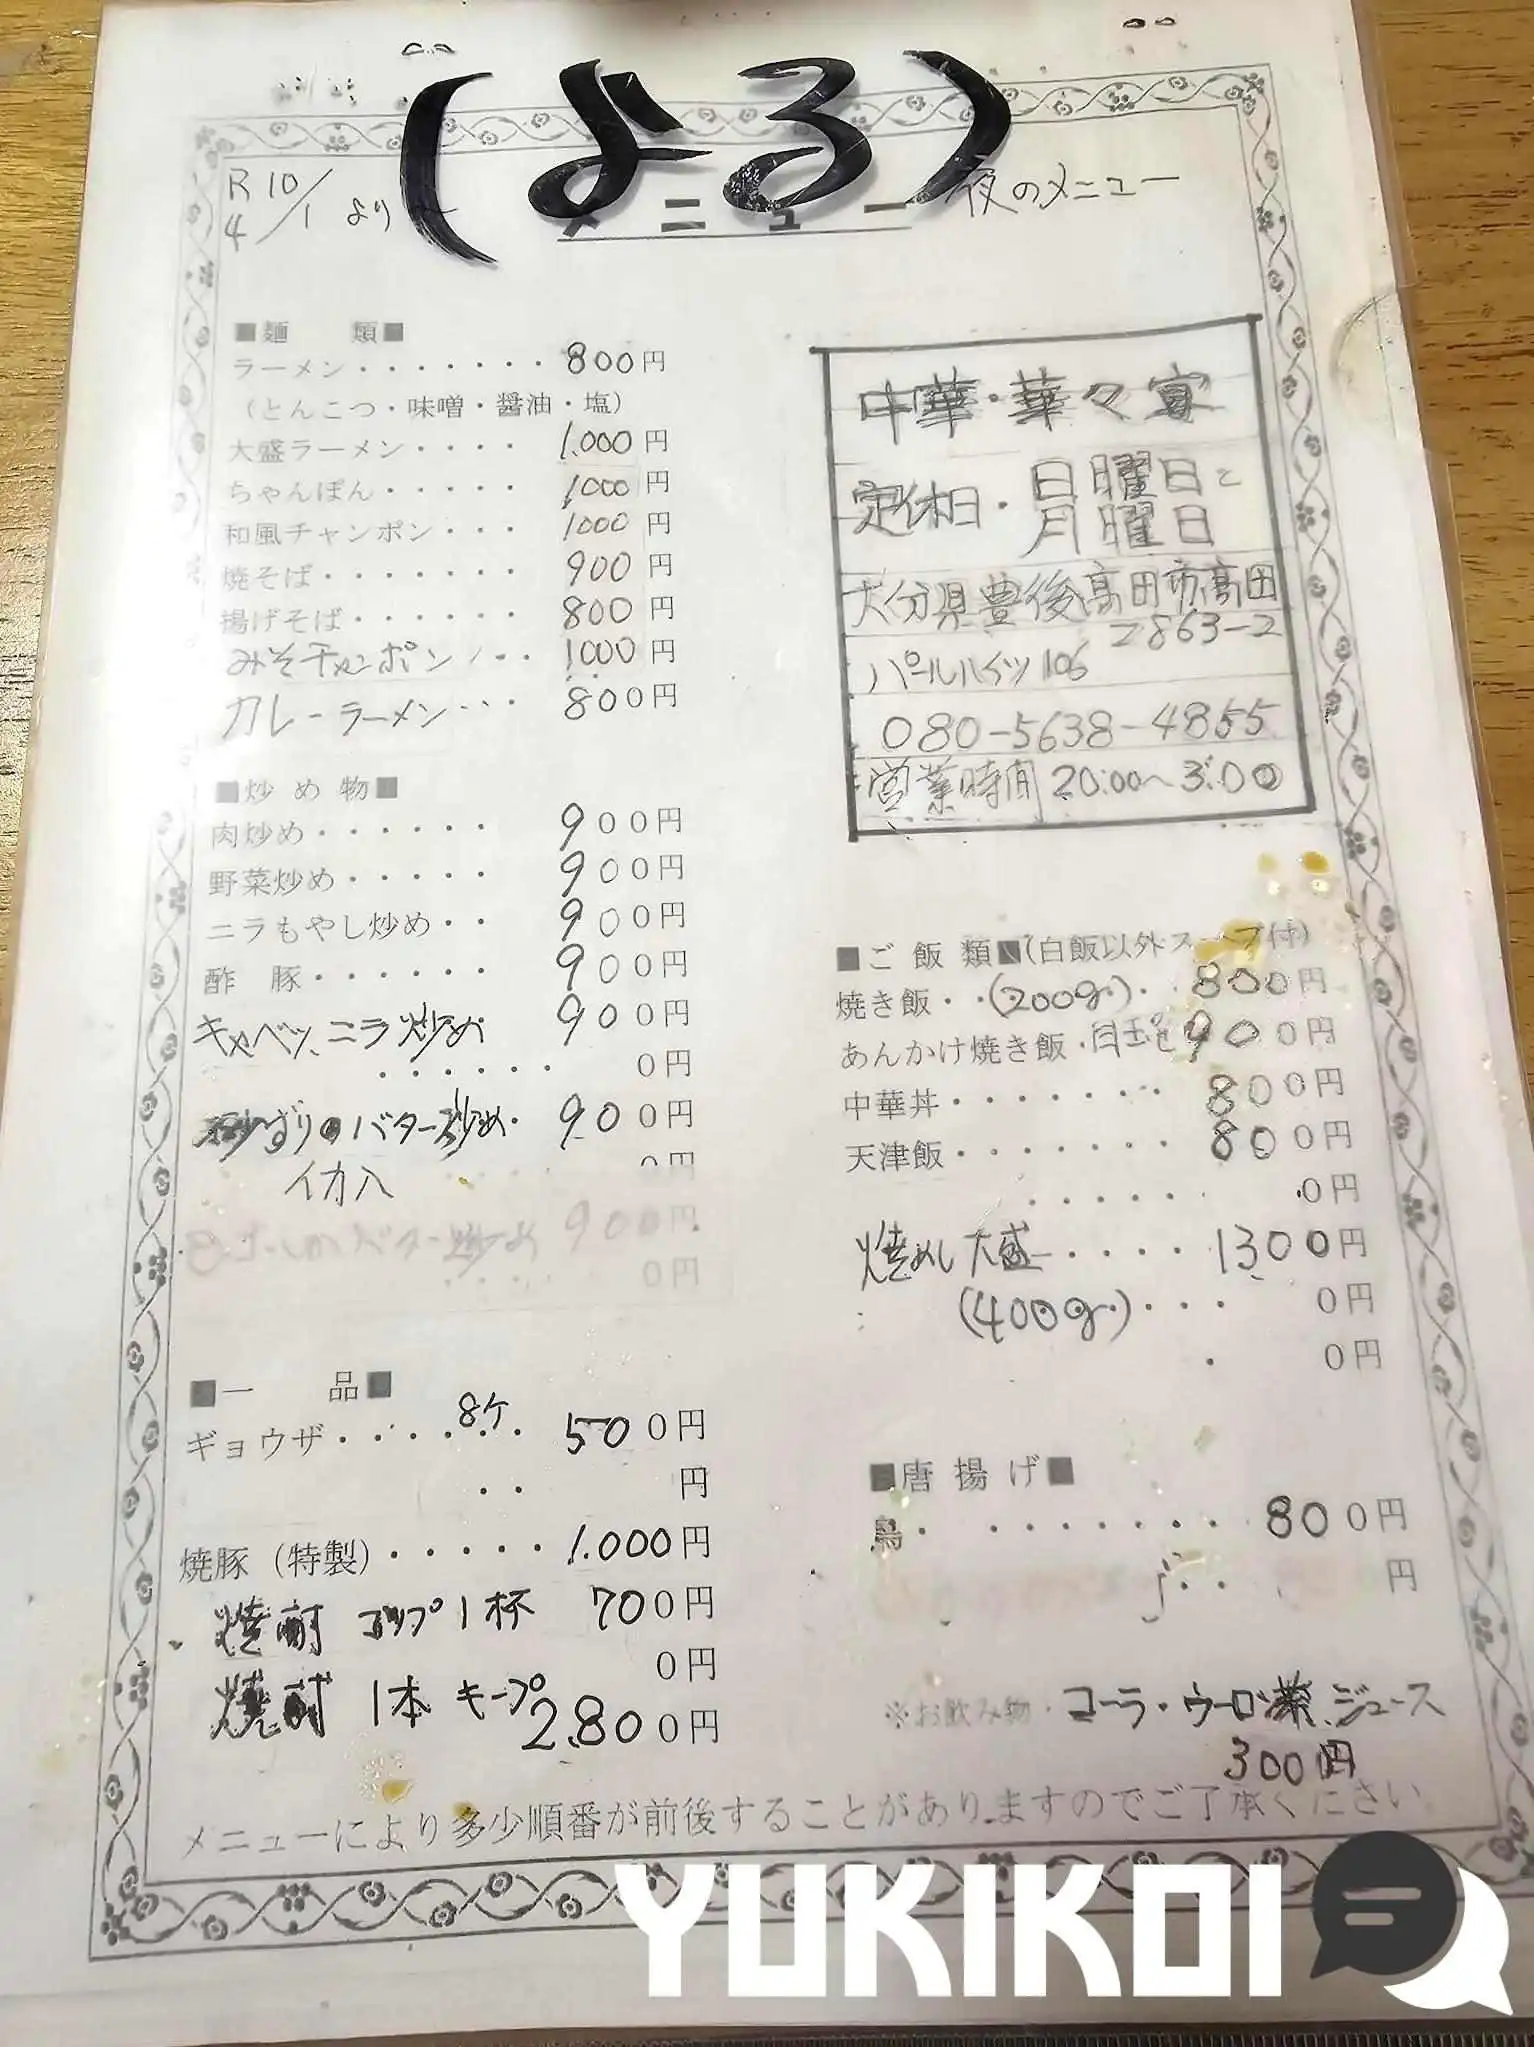 (よる)
R4 10/1 より
メニュー
夜のメニュー
■麺 類■
ラーメン・・・・・・・800円
(とんこつ・味噌・醤油・塩)
大盛ラーメン・・・・1.000円
ちゃんぽん・・・・・1000円
和風チャンポン・・・1000円
焼そば・・・・・・・900円
揚げそば・・・・・・800円
みそチャンポン・・・1000円
カレーラーメン・・・800円
■炒め物■
肉炒め・・・・・・900円
野菜炒め・・・・・900円
ニラもやし炒め・・900円
酢 豚・・・・・・900円
キャベツ、ニラ炒め 900円
・・・・・・0円
砂ずりのバター炒め・900円
イカ入 ・・・・0円
バター炒め 900円
・・・・0円
■一 品■
ギョウザ・・・・・・・8ケ 500円
・・ 円
焼豚(特製)・・・・・1.000円
焼酎 コップ1杯 700円
0円
焼酎 1本 キープ 2.800円
中華・華々宴
定休日・日曜日と
月曜日
大分県豊後高田市高田
2863-2
パールハイツ106
080-5638-4855
営業時間 20:00〜3:00
■ご飯類■(白飯以外スープ付)
焼き飯・・(200g.)・・800円
あんかけ焼き飯・目玉 900円
中華丼・・・・・・・800円
天津飯・・・・・・・800円
・・・・・・0円
焼めし大盛・・・・・1300円
(400g.)・・・0円
・ 0円
■唐揚げ■
鳥・ ・・・・・・・・800円
・・ 円
※お飲み物・コーラ・ウーロン茶、ジュース
300円
メニューにより多少順番が前後することがありますのでご了承ください。
YUKIKOI